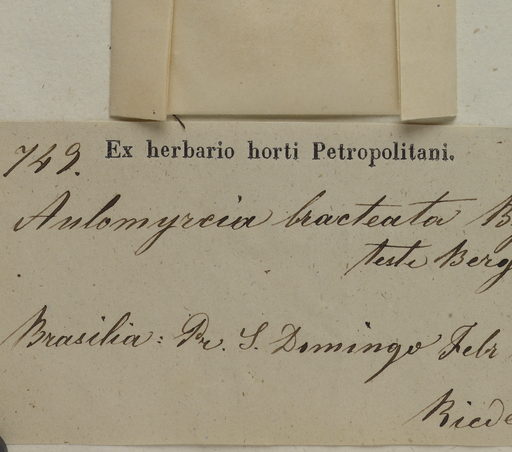 749. Ex herbario horti Petropolitani.
Aulomyrcia bracteata B
teste Berg
Brasilia: Pr. S. Domingo Febr
Riede